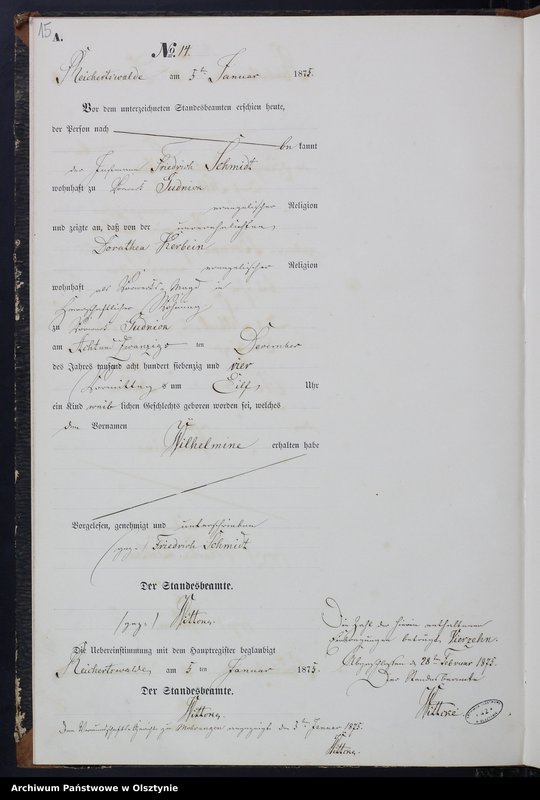 15
A.
No. 14.
Reichertswalde am 5ten Januar 1875.
Vor dem unterzeichneten Standesbeamten erschien heute,
der Person nach
be kannt
der Instmann Friedrich Schmidt
wohnhaft zu Vorwerk Gudnien
evangelischer Religion
und zeigte an, daß von der unverehelichten
Dorothea Kerbein
evangelischer Religion
wohnhaft als Vorwerks-Magd in
herrschaftlicher Wohnung
zu Vorwerk Gudnien
am Acht und Zwanzigsten December
des Jahres tausend acht hundert siebenzig und vier
Vormittags um Eilf Uhr
ein Kind weib lichen Geschlechts geboren worden sei, welches
den Vornamen
Wilhelmine erhalten habe
Vorgelesen, genehmigt und unterschrieben
(gez.) Friedrich Schmidt
Der Standesbeamte.
(gez.) Wittone.
Die Uebereinstimmung mit dem Hauptregister beglaubigt
Reichertswalde, am 5 ten Januar 1875.
Der Standesbeamte.
Wittone.
Dem Vormundschafts-Gericht zu Mohrungen angezeigt den 5ten Januar 1875.
Wittone.
Die Zahl der hierin enthaltenen
Eintragungen beträgt Vierzehn.
Abgeschlossen den 28ten Februar 1875.
Der Standesbeamte
Wittone
Archiwum Państwowe w Olsztynie